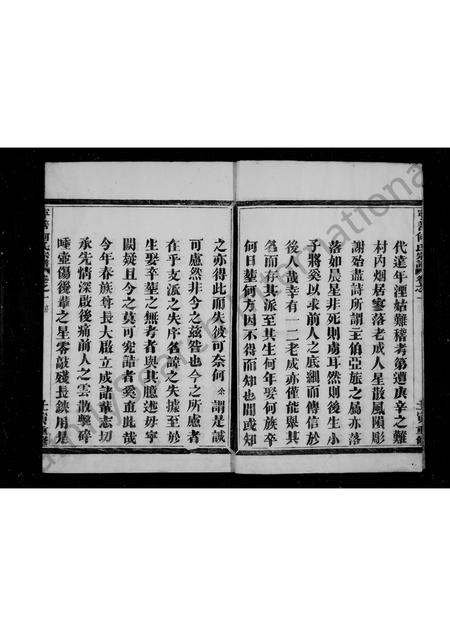 代遠年湮姑難稽考第遭庚辛之難
村内烟居寥落老成人星散風隕彫
謝始盡詩所謂主伯亞旅之屬亦落
落如晨星非死則虜耳然則後生小
子將奚以求前人之底細而傳信於
後人哉幸有一二老成亦僅能舉其
名而存其派至其生何年娶何族卒
何日塟何方因不得而知也間或知
之亦得此而失彼可奈何余謂是誠
可慮然非今之茲咎也今之所慮者
在乎支派之失序名諱之失據至於
生娶卒塟之無考者與其臆述毋寧
闕疑且今之莫可究詰者奚止此哉
今年春族尊長大啟立成諸輩志切
承先情深啟後痛前人之雲散擊碎
唾壺傷後輩之星零敲殘長鋏用是